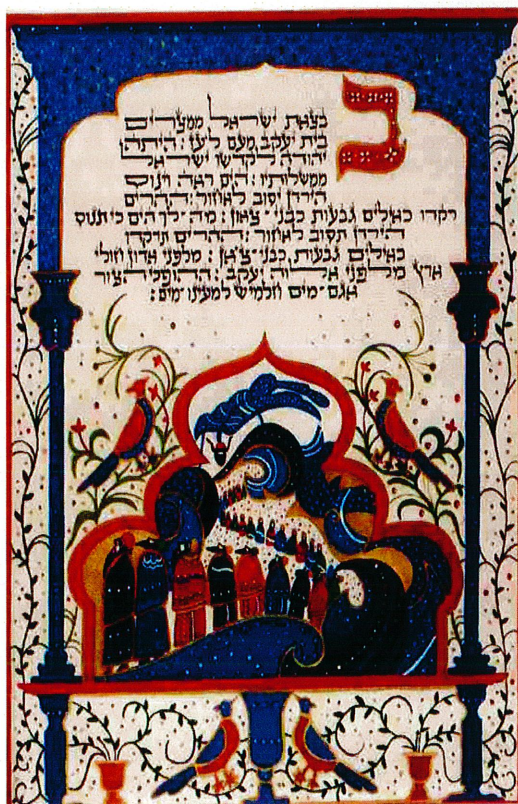 ב
בצאת ישראל ממצרים
בית יעקב מעם לעז : היתה
יהודה לקדשו ישראל
ממשלותיו : הים ראה וינוס
הירדן יסוב לאחור : ההרים
רקדו כאילים גבעות כבני־צאן : מה לך הים כי תנוס
הירדן תסוב לאחור : ההרים תרקדו
כאילים גבעות כבני־צאן : מלפני אדון חולי
ארץ מלפני אלוה יעקב : ההופכי הצור
אגם־מים חלמיש למעינו־מים :